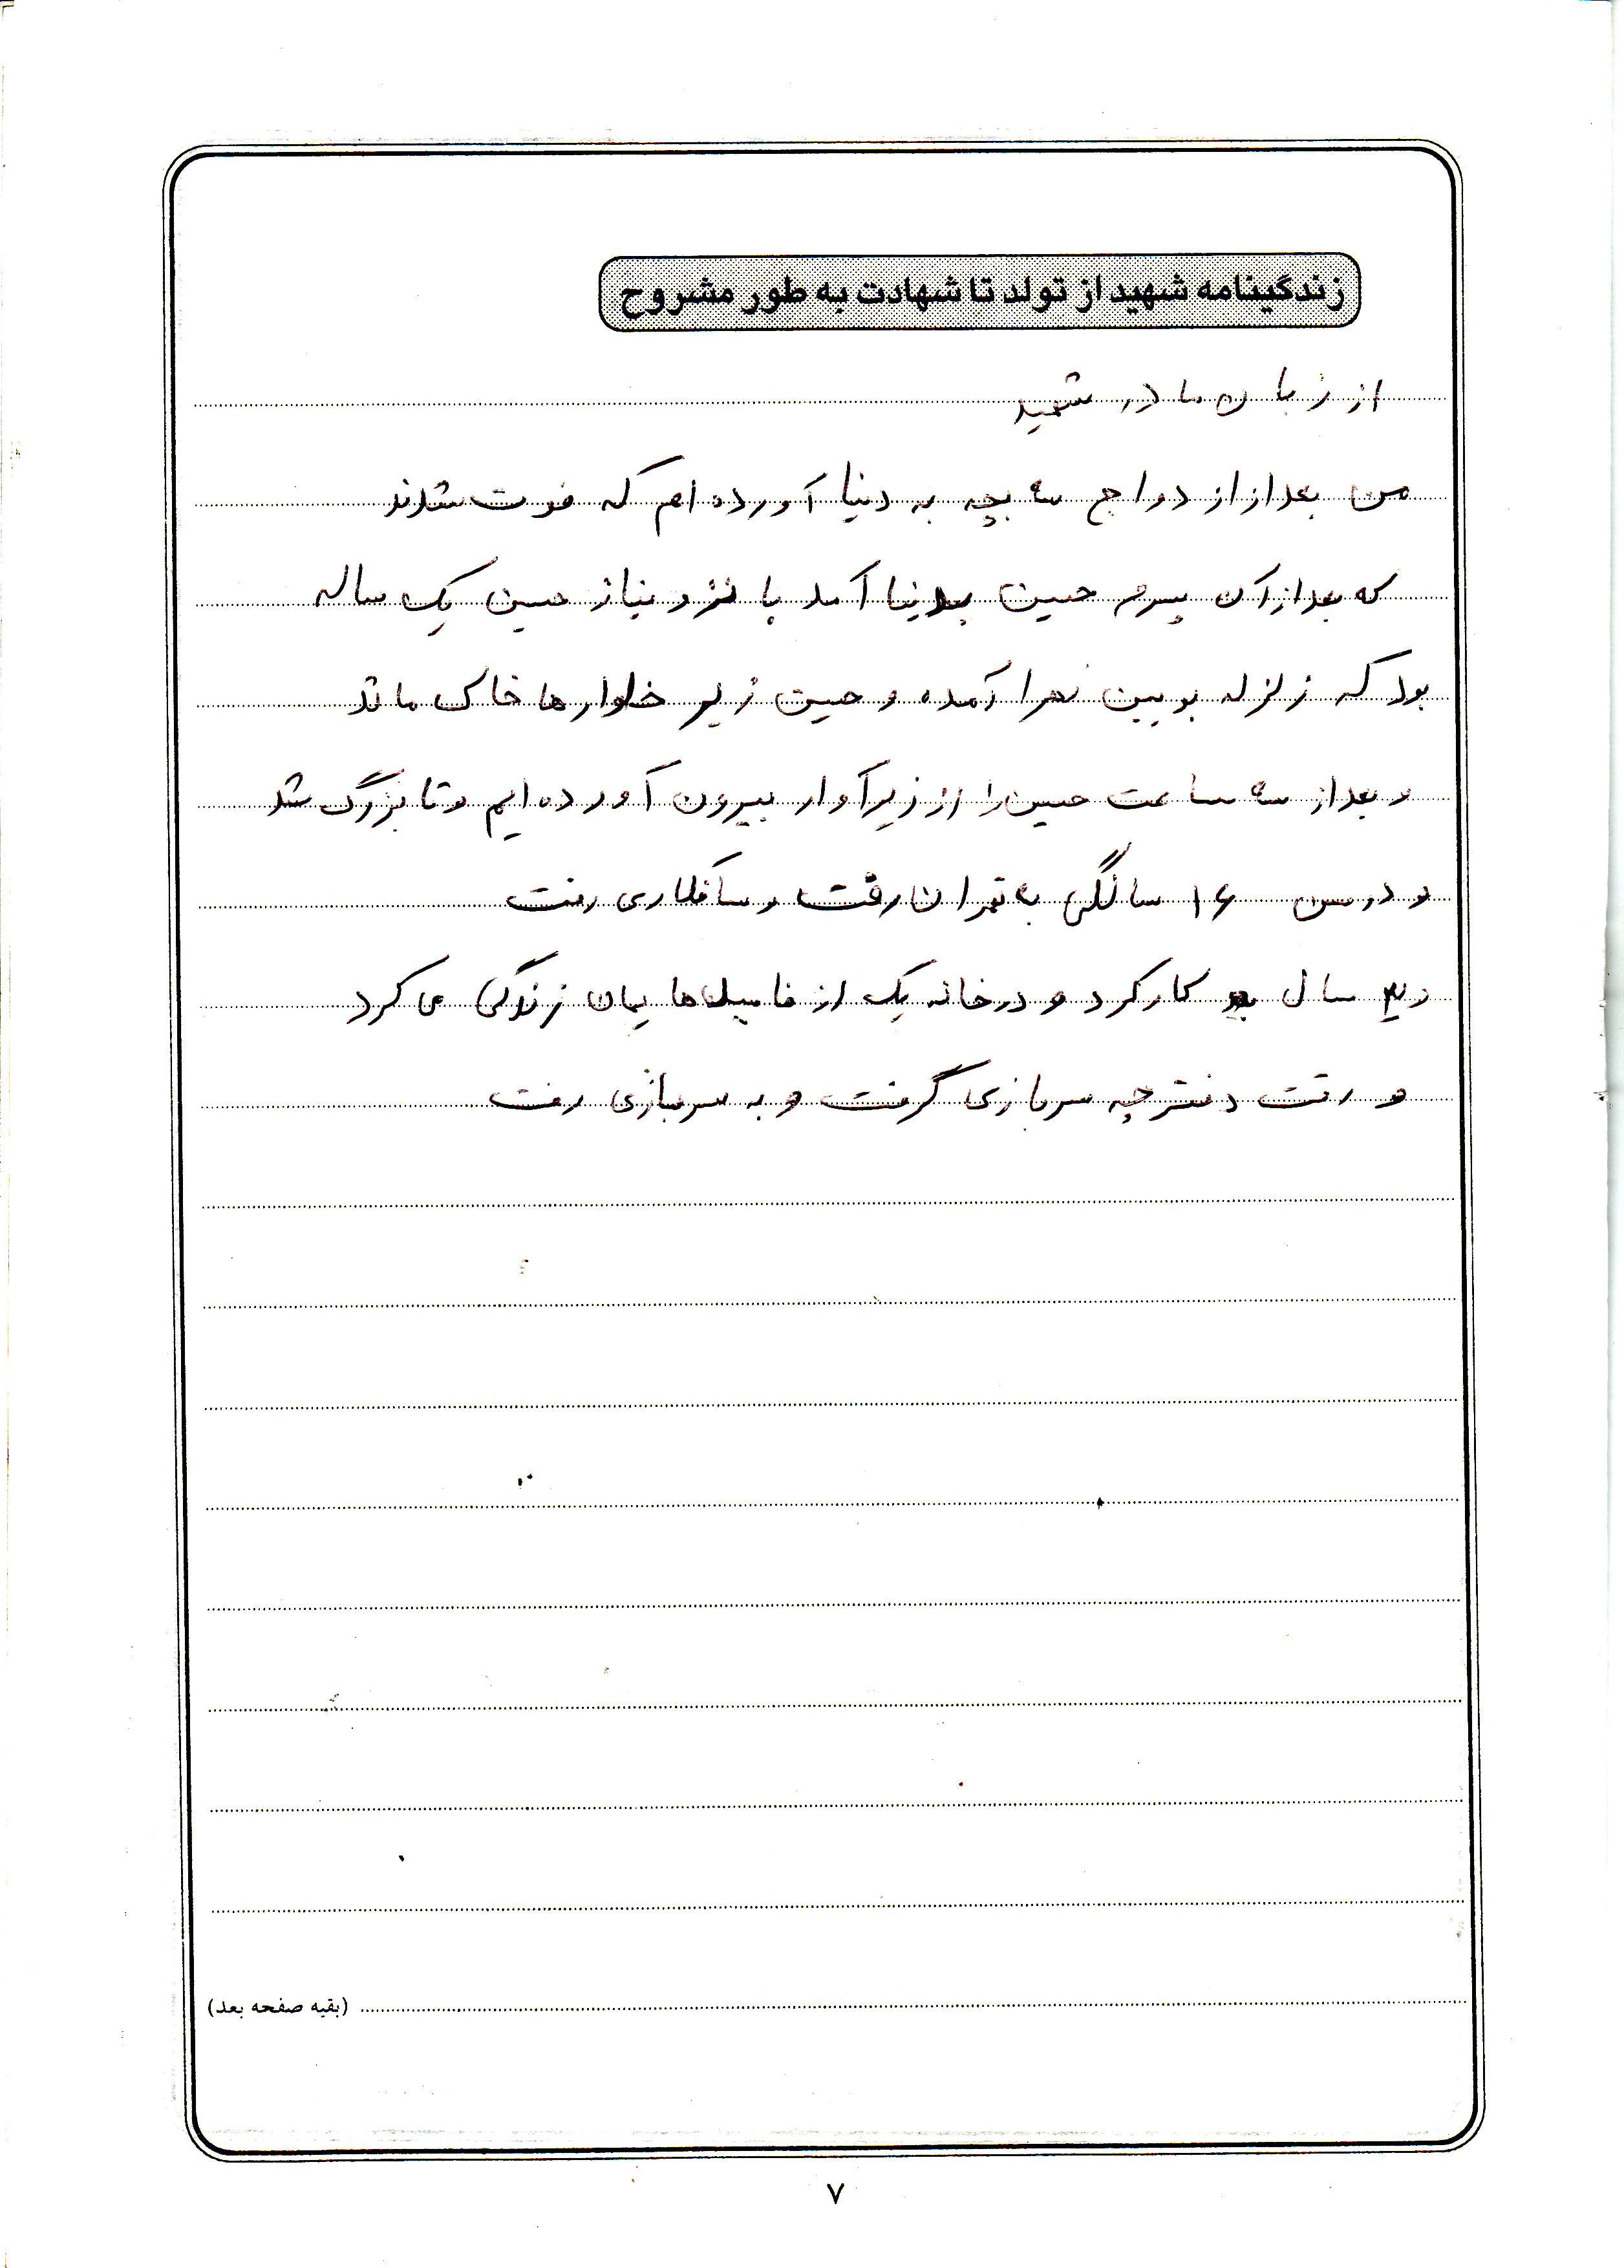 زندگینامه شهید از تولد تا شهادت به طور مشروح
از زبان مادر شهید
من بعد از ازدواج سه بچه به دنیا آورده ام که فوت شدند
که بعد از آن پسرم حسین بدنیا آمد با نذر و نیاز حسین یک ساله
بود که زلزله بویین زهرا آمده و حسین زیر خلوارها خاک ماند
و بعد از سه ساعت حسین را از زیر آوار بیرون آورده ایم و تا بزرگ شد
و در سن ۱۶ سالگی به تهران رفت و سافکاری رفت
و ۳ سال کار کرد و در خانه یک از فامیلهایمان زندگی می کرد
و رفت دفترچه سربازی گرفت و به سربازی رفت
(بقیه صفحه بعد)
۷